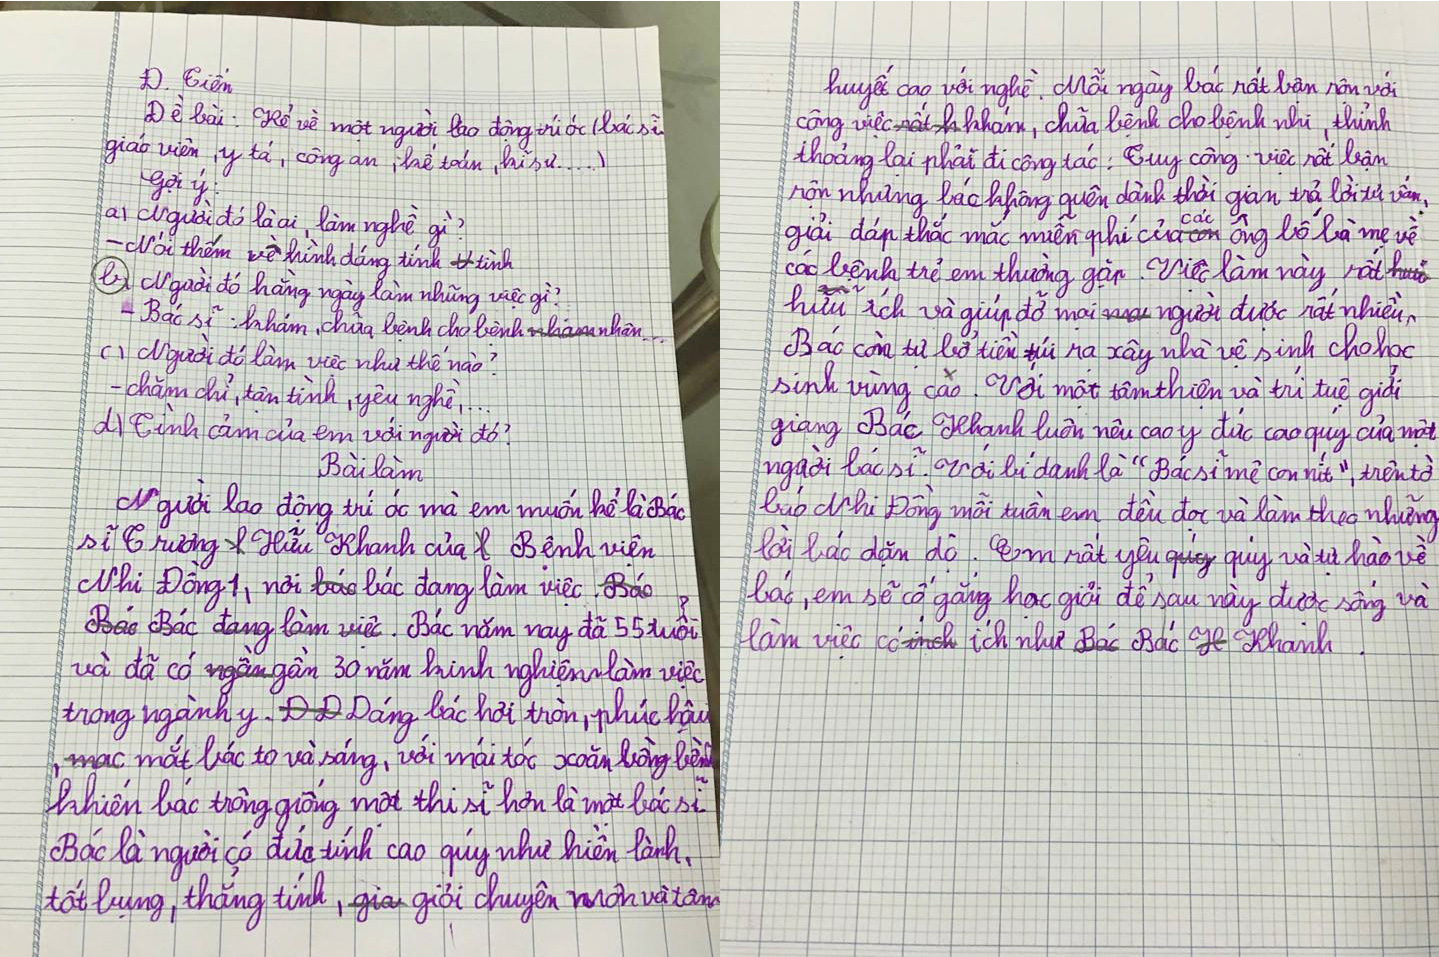 Đ. Tiến
Đề bài: Kể về một người lao động trí óc (bác sĩ
giáo viên, y tá, công an, kế toán, kĩ sư.....)
Gợi ý:
a) Người đó là ai, làm nghề gì?
- Nói thêm về hình dáng tính tình
b) Người đó hằng ngày làm những việc gì?
- Bác sĩ: khám, chữa bệnh cho bệnh nhân...
c) Người đó làm việc như thế nào?
- chăm chỉ, tận tình, yêu nghề,...
d) Tình cảm của em với người đó?
Bài làm
Người lao động trí óc mà em muốn kể là Bác
sĩ Trương Hữu Khanh của Bệnh viện
Nhi Đồng 1, nơi bác đang làm việc. Bác
Bác Bác đang làm việc. Bác năm nay đã 55 tuổi
và đã có gần 30 năm kinh nghiện làm việc
trong ngành y. Dáng bác hơi tròn, phúc hậu
, mắt bác to và sáng, với mái tóc xoăn bồng bền
khiến bác trông giống một thi sĩ hơn là một bác sĩ
Bác là người có đức tính cao qúy như hiền lành,
tốt bụng, thẳng tính, giỏi chuyên môn và tâm
huyết cao với nghề. Mỗi ngày bác rất bận rộn với
công việc khám, chữa bệnh cho bệnh nhi, thỉnh
thoảng lại phải đi công tác. Tuy công việc rất bận
rộn nhưng bác không quên dành thời gian trả lời tư vấn,
giải đáp thắc mắc miễn phí của các ông bố bà mẹ về
các bệnh trẻ em thường gặp. Việc làm này rất
hữu ích và giúp đỡ mọi người được rất nhiều,
Bác còn tự bỏ tiền túi ra xây nhà vệ sinh cho học
sinh vùng cao. Với một tâm thiện và trí tuệ giỏi
giang Bác Khanh luôn nêu cao y đức cao quý của một
người bác sĩ. Với bí danh là "Bác sĩ mê con nít", trên tờ
báo Nhi Đồng mỗi tuần em đều đọc và làm theo những
lời bác dặn dò. Em rất yêu quý và tự hào về
bác, em sẽ cố gắng học giỏi để sau này được sống và
làm việc có ích như Bác Khanh.